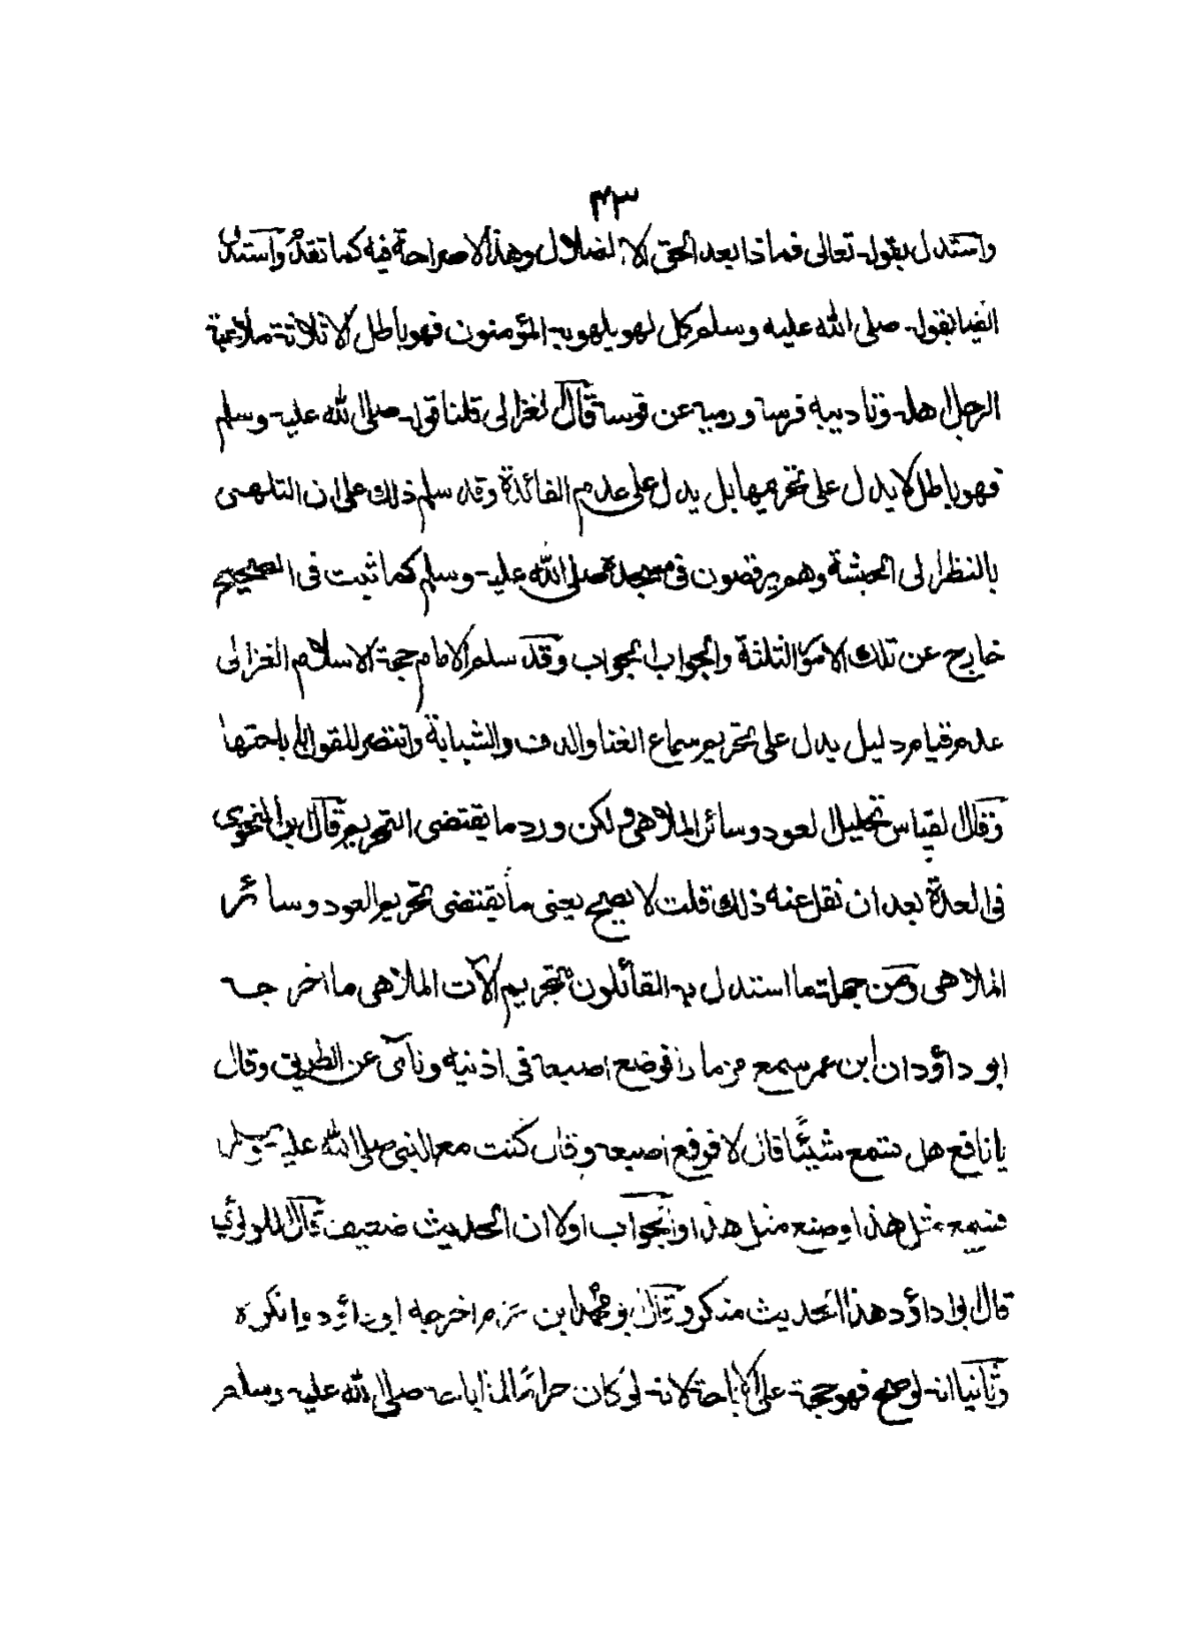 ٤٣
واستدل بقوله تعالى فماذا بعد الحق الا الضلال وهذا لا صراحة فيه كما تقدم واستدل
ايضا بقوله صلى الله عليه وسلم كل لهو يلهو به المؤمنون فهو باطل الا ثلاثة ملاعبة
الرجل اهله وتاديبه فرسه ورميه عن قوسه قال الغزالى قلنا قوله صلى الله عليه وسلم
فهو باطل لا يدل على تحريمها بل يدل على عدم الفائدة وقد سلم ذلك على ان التلهى
بالنظر الى الحبشة وهم يرقصون فى مسجده صلى الله عليه وسلم كما ثبت فى الصحيح
خارج عن تلك الامور الثلثة والجواب الجواب وقد سلم الامام حجة الاسلام الغزالى
عدم قيام دليل يدل على تحريم سماع الغنا والدف والشبابة وانتصر للقول باباحتها
وقال القياس تحليل العود وسائر الملاهى ولكن ورد ما يقتضى التحريم قال ابن النحوى
فى العدة بعد ان نقل عنه ذلك قلت لا يصح يعنى ما يقتضى تحريم العود وسائر
الملاهى ومن جملة ما استدل به القائلون بتحريم الآت الملاهى ما اخرجه
ابو داؤد ان ابن عمر سمع مزمارا فوضع اصبعه فى اذنيه ونآى عن الطريق وقال
يا نافع هل تسمع شيئًا قال لا فرفع اصبعه وقال كنت مع النبى صلى الله عليه وسلم
فسمع مثل هذا وصنع مثل هذا والجواب اولا ان الحديث ضعيف قال اللولؤي
قال ابو داؤد هذا الحديث منكر وقال ابو محمد ابن حزم اخرجه ابو داؤد وانكره
وثانيا انه لو صح فهو حجة على الاباحة لانه لو كان حراما لما اباحه صلى الله عليه وسلم